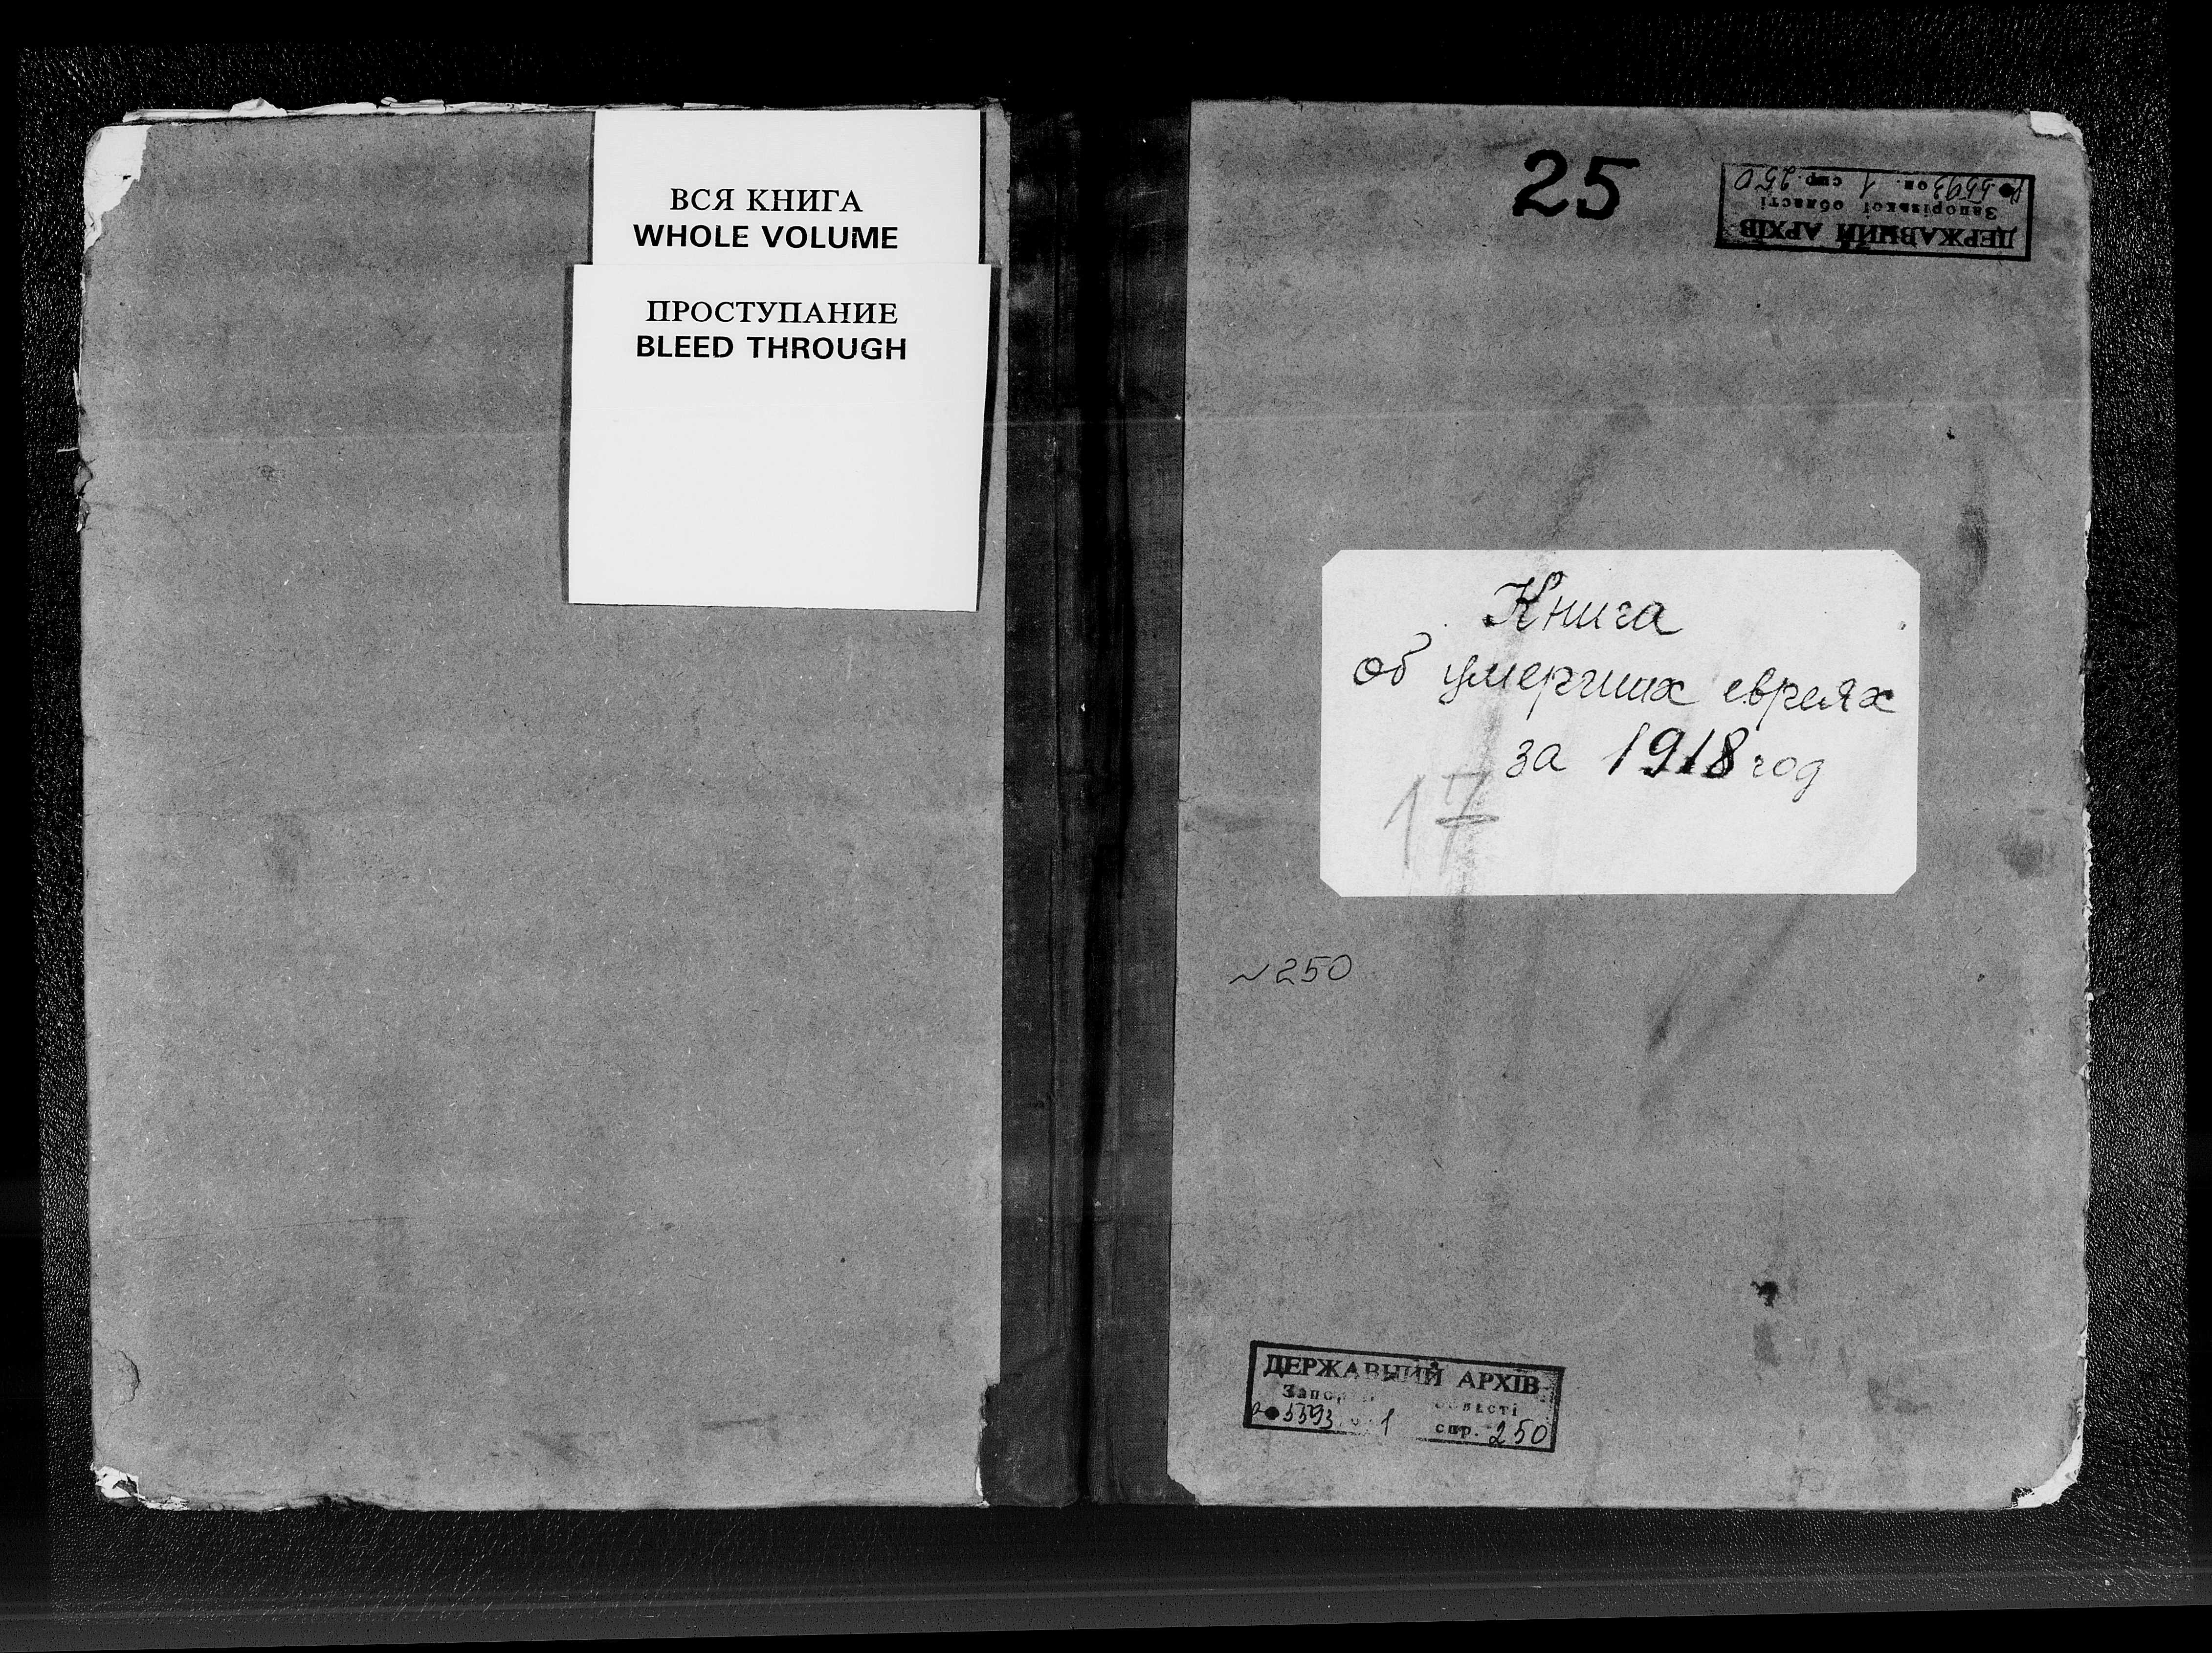 ВСЯ КНИГА
WHOLE VOLUME
ПРОСТУПАНИЕ
BLEED THROUGH
25
ДЕРЖАВНИЙ АРХІВ
Запорізької області
5593 оп. 1 спр. 250
Книга
об умерших евреях
за 1918 год
17
~250
ДЕРЖАВНИЙ АРХІВ
5593 1 спр. 250